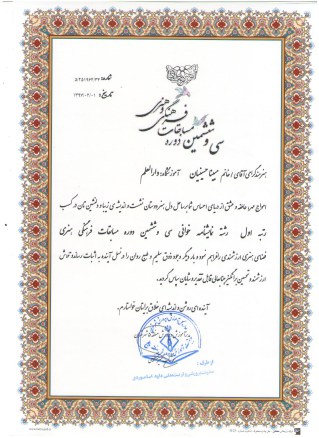 شماره: ۵۲۵۱۹۶۴/۳۶
تاریخ: ۱۳۹۷/۰۲/۰۱
سی و ششمین دوره
مسابقات
فرهنگی و هنری
هنرمند گرامی آقای / خانم مبینا حبیبیان آموزشگاه: دارالعلم
امواج مهر، عاطفه و عشق از دریای احساس شما بر ساحل دل هنردوستان نشست و اندیشه‌ی زیبا و دلنشین‌تان در کسب
رتبه اول رشته نمایشنامه خوانی سی و ششمین دوره مسابقات فرهنگی هنری
فضای هنری ارزشمندی را فراهم نمود و بار دیگر وجود ذوق سلیم و طبع روان را در نسل آینده به اثبات رسانده تلاش
ارزشمند و تحسین برانگیز شما عالی قابل تقدیر و شایان سپاس گردید.
آینده‌ای روشن و اندیشه‌ای خلاق برایتان خواستارم.
از طرف: